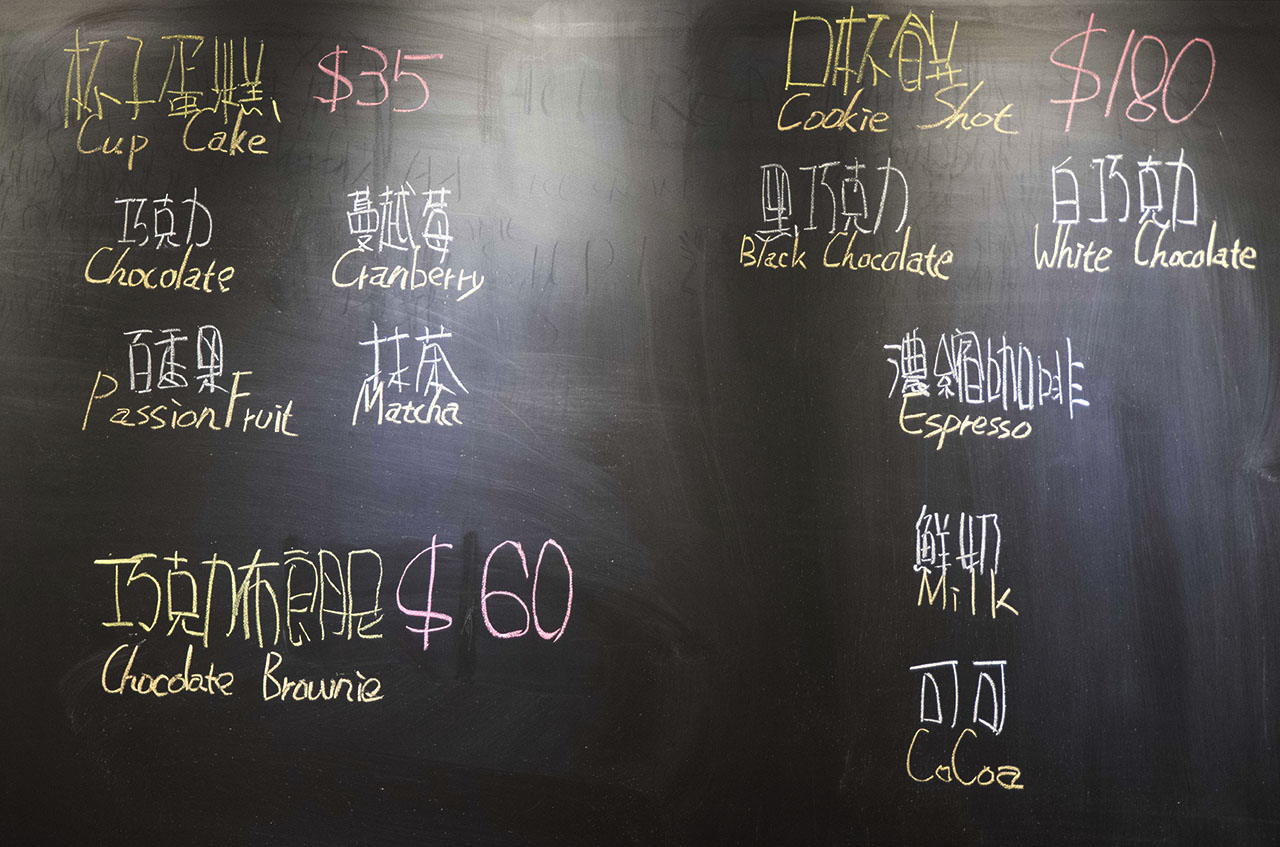 杯子蛋糕 $35
Cup Cake
巧克力
Chocolate
蔓越莓
Cranberry
百香果
Passion Fruit
抹茶
Matcha
巧克力布朗尼 $60
Chocolate Brownie
口杯餅 $180
Cookie Shot
黑巧克力
Black Chocolate
白巧克力
White Chocolate
濃縮咖啡
Espresso
鮮奶
Milk
可可
CoCoa